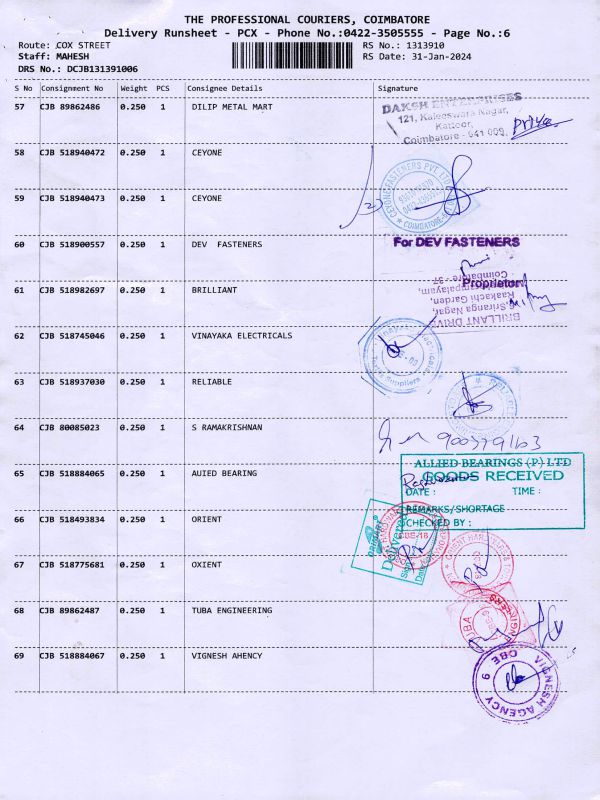 THE PROFESSIONAL COURIERS, COIMBATORE
Delivery Runsheet - PCX - Phone No.:0422-3505555 - Page No.:6
Route: COX STREET RS No.: 1313910
Staff: MAHESH RS Date: 31-Jan-2024
DRS No.: DCJB131391006
S No Consignment No Weight PCS Consignee Details Signature
57 CJB 89862486 0.250 1 DILIP METAL MART
DAKSH ENTERPRISES
121, Kaleeswara Nagar,
Kattoor,
Coimbatore - 641 009.
Priya
58 CJB 518940472 0.250 1 CEYONE
CEYONE FASTENERS PVT LTD
COIMBATORE
59 CJB 518940473 0.250 1 CEYONE
60 CJB 518900557 0.250 1 DEV FASTENERS
For DEV FASTENERS
Proprietor
61 CJB 518982697 0.250 1 BRILLIANT
BRILLANT DRIV
Sriranga Nagar,
Kaakachi Garden,
Coimbatore - 37
62 CJB 518745046 0.250 1 VINAYAKA ELECTRICALS
63 CJB 518937030 0.250 1 RELIABLE
64 CJB 80085023 0.250 1 S RAMAKRISHNAN
65 CJB 518884065 0.250 1 AUIED BEARING
ALLIED BEARINGS (P) LTD
GOODS RECEIVED
DATE : TIME :
REMARKS/SHORTAGE
CHECKED BY :
66 CJB 518493834 0.250 1 ORIENT
Delivered
CBE-18
67 CJB 518775681 0.250 1 OXIENT
68 CJB 89862487 0.250 1 TUBA ENGINEERING
69 CJB 518884067 0.250 1 VIGNESH AHENCY
VIGNESH AGENCY
CBE 9